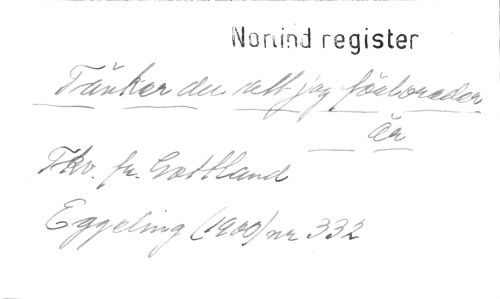 Norlind register
Tänker du att jag förlorader
är
Fkv. fr. Gottland
Eggeling (1900) nr 332